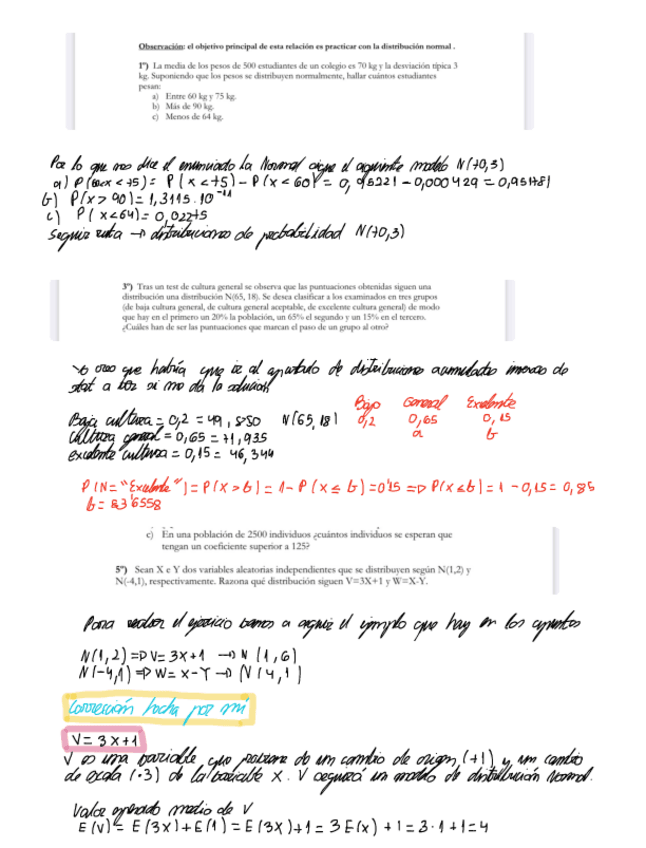 Observación: el objetivo principal de esta relación es practicar con la distribución normal .
1º) La media de los pesos de 500 estudiantes de un colegio es 70 kg y la desviación típica 3
kg. Suponiendo que los pesos se distribuyen normalmente, hallar cuántos estudiantes
pesan:
a) Entre 60 kg y 75 kg.
b) Más de 90 kg.
c) Menos de 64 kg.
Por lo que nos dice el enunciado la Normal sigue el siguiente modelo N(70,3)
a) P(60<x<75)= P(x<75) - P(x<60)= 0,95221 - 0,000429 = 0,951781
b) P(x>90)= 1,3115.10⁻¹¹
c) P(x<64)= 0,02275
Seguir ruta → distribuciones de probabilidad N(70,3)
3º) Tras un test de cultura general se observa que las puntuaciones obtenidas siguen una
distribución una distribución N(65, 18). Se desea clasificar a los examinados en tres grupos
(de baja cultura general, de cultura general aceptable, de excelente cultura general) de modo
que hay en el primero un 20% la población, un 65% el segundo y un 15% en el tercero.
¿Cuáles han de ser las puntuaciones que marcan el paso de un grupo al otro?
Yo creo que habría que ir al apartado de distribuciones acumuladas inversas de
stat a ver si me da la solución
Bajo General Excelente
Baja cultura = 0,2 = 49,850 N(65,18) 0,2 0,65 0,15
Cultura general = 0,65 = 71,935 a b
excelente cultura = 0,15 = 46,344
P(N= "Excelente")= P(x>b)= 1- P(x≤b)=0'15 => P(x≤b)= 1 - 0,15= 0,85
b= 83'6558
c) En una población de 2500 individuos ¿cuántos individuos se esperan que
tengan un coeficiente superior a 125?
5º) Sean X e Y dos variables aleatorias independientes que se distribuyen según N(1,2) y
N(-4,1), respectivamente. Razona qué distribución siguen V=3X+1 y W=X-Y.
Para realizar el ejercicio vamos a seguir el ejemplo que hay en los apuntes
N(1,2) => V= 3x+1 → N (1,6)
N(-4,1) => W= x-Y → N (4,1)
Corrección hecha por mí
V= 3x+1
V es una variable, que proviene de un cambio de origen, (+1) y un cambio
de escala (·3) de la variable X. V seguirá un modelo de distribución Normal.
Valor esperado medio de V
E(V)= E(3x)+E(1)= E(3x)+1= 3E(x) +1= 3·1+1=4